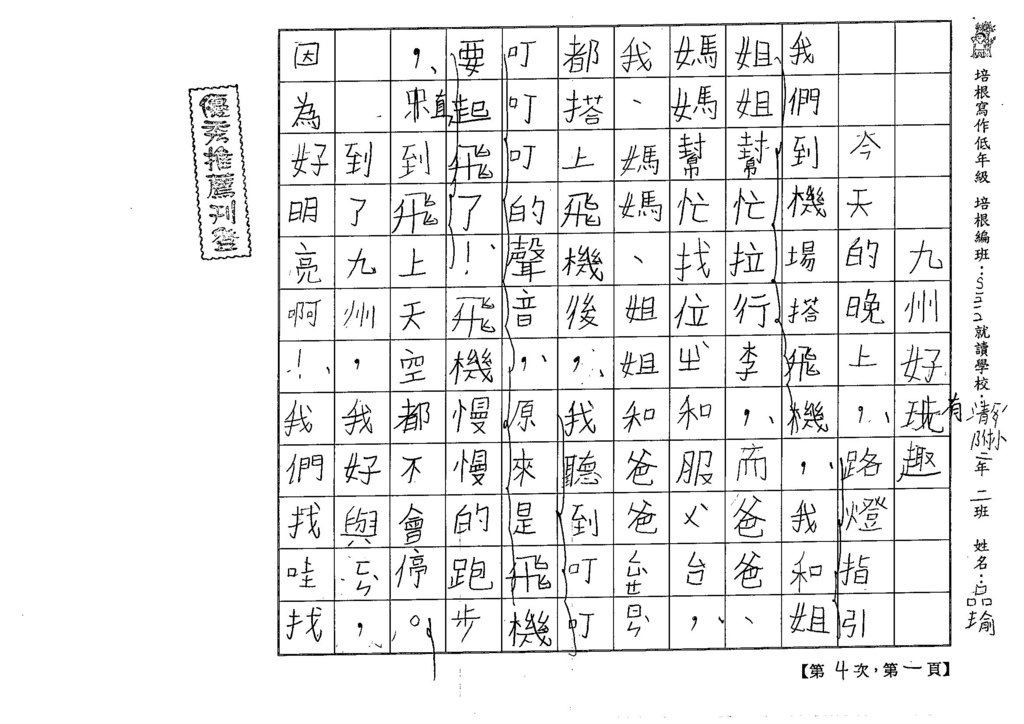 培根寫作低年級 培根編班：就讀學校：清華附小二年 二班 姓名：品瑜
九州好玩有趣
今天的晚上，路燈指引
我們到機場搭飛機，我和姐
姐姐幫忙拉行李，而爸爸、
媽媽幫忙找位ㄓˋ和服ㄨˋ台，
我、媽媽、姐姐和爸
都搭上飛機後，我聽到叮叮
叮叮叮的聲音，原來是飛機
要起飛了！飛機慢慢的跑步
，直到飛上天空都不會停。
到了九州，我好興ㄈㄣˋ，
因為好明亮啊！我們找哇找
【第4次，第一頁】
優秀推薦刊登